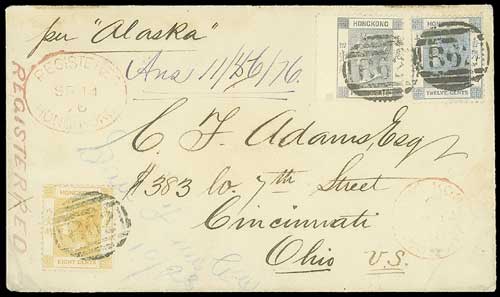 per "Alaska"
HONGKONG
HONGKONG
B62
B62
TWELVE CENTS
REGISTERED
SP 14
76
HONG KONG
Ans 11/15/76.
REGISTERED
C. F. Adams, Esq
#383 Co. 7th Street
Cincinnati
Ohio U.S.
HONGKONG
EIGHT CENTS